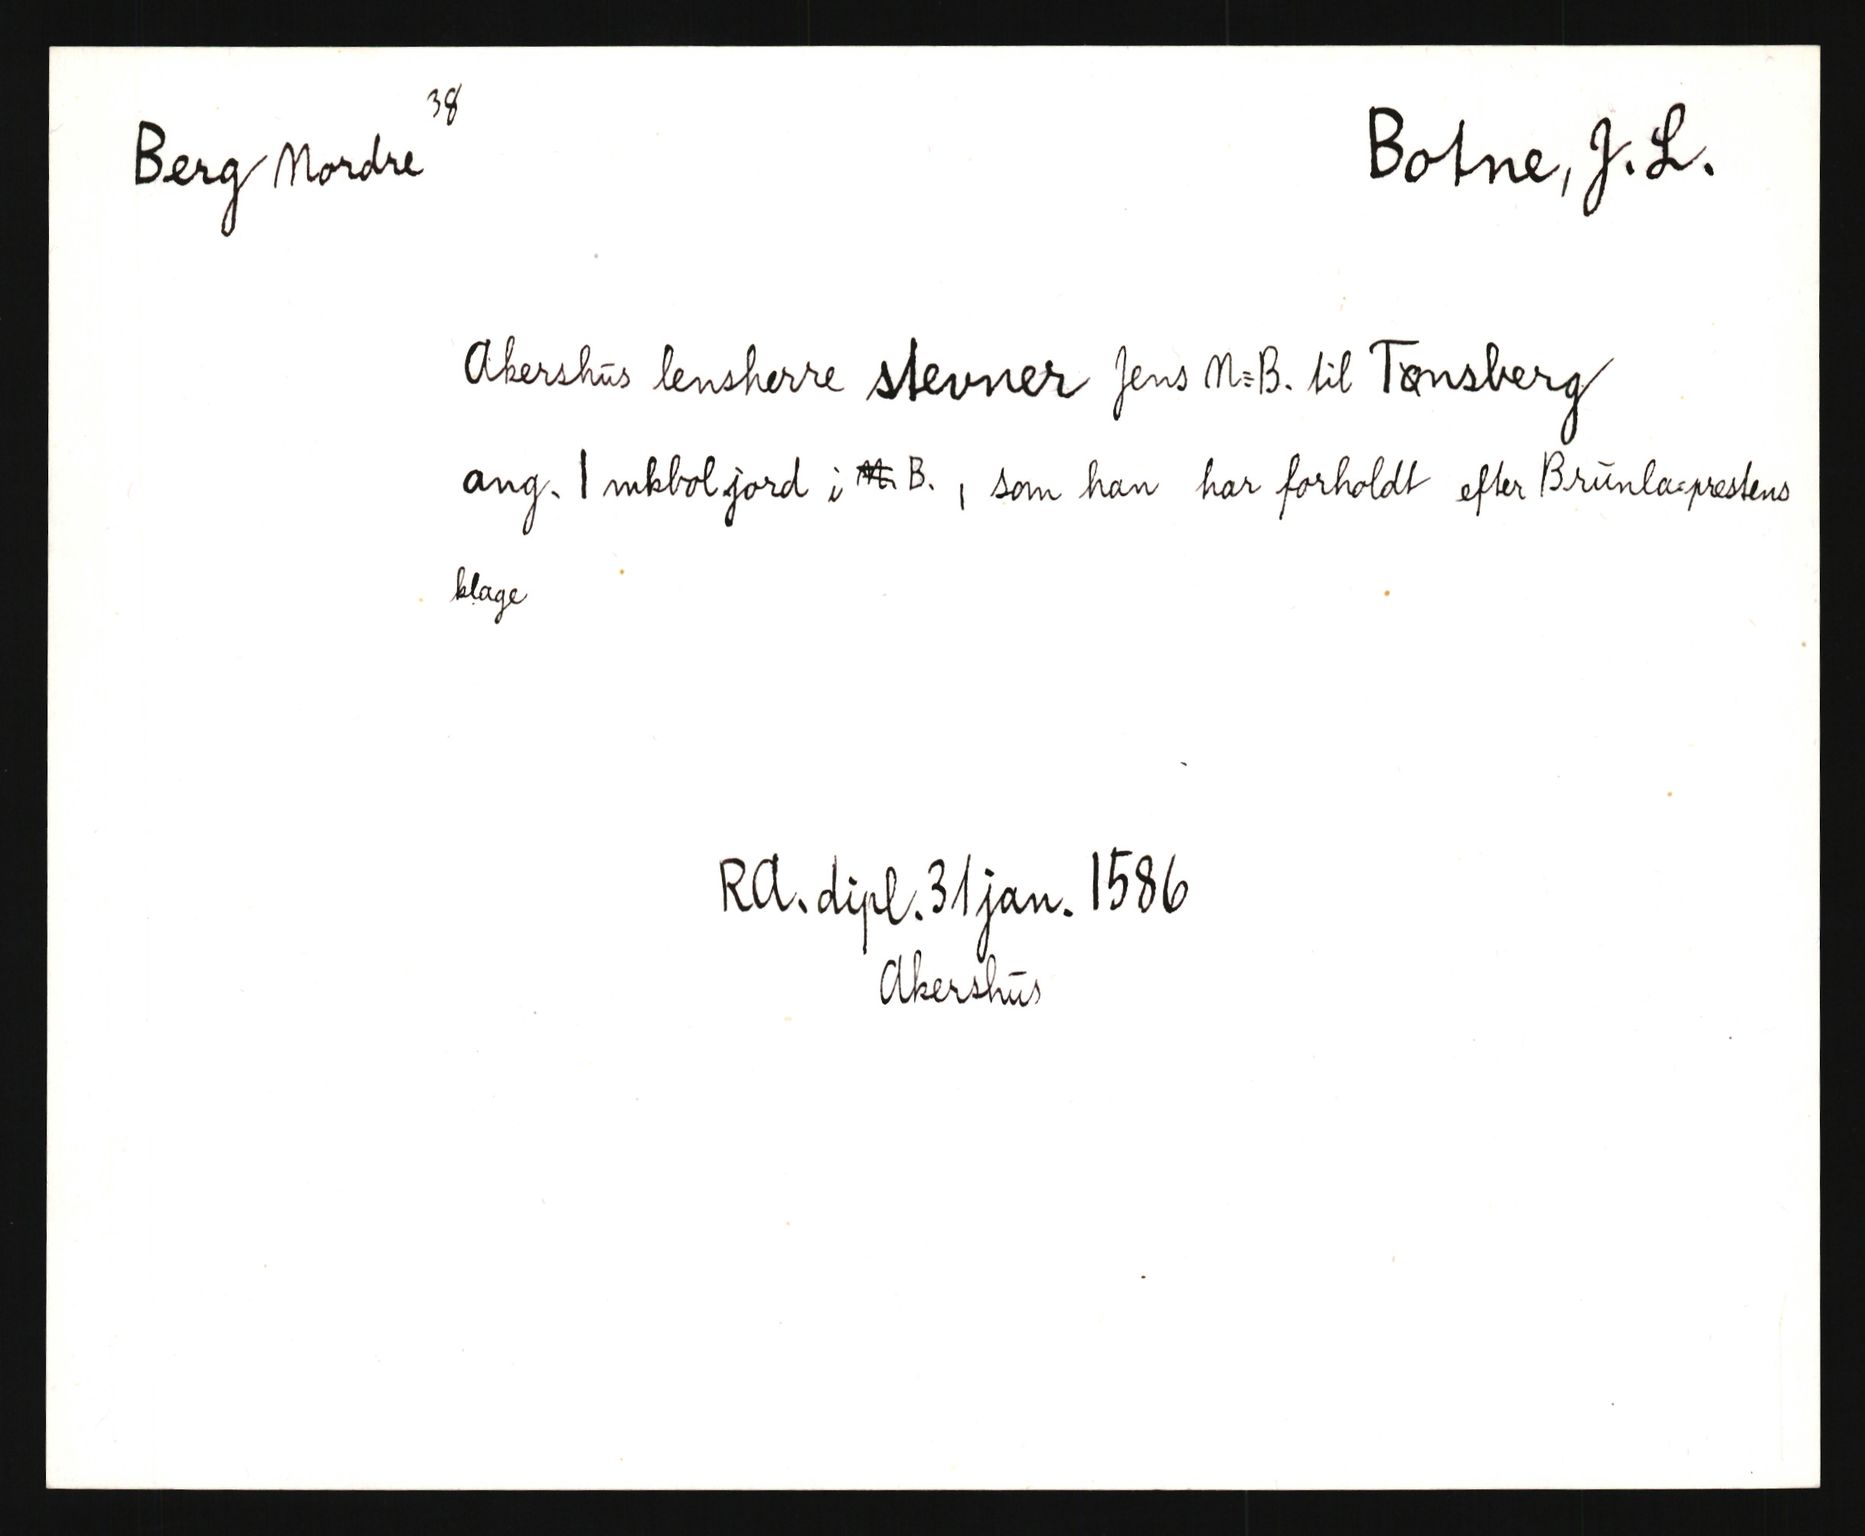 Berg Nordre 38
Botne, J. L.
Akershūs lensherre stevner Jens N=B. til Tønsberg
ang. 1 mkbol jord i B., som han har forholdt efter Brūnla=prestens
klage
RA. dipl. 31 jan. 1586
Akershūs